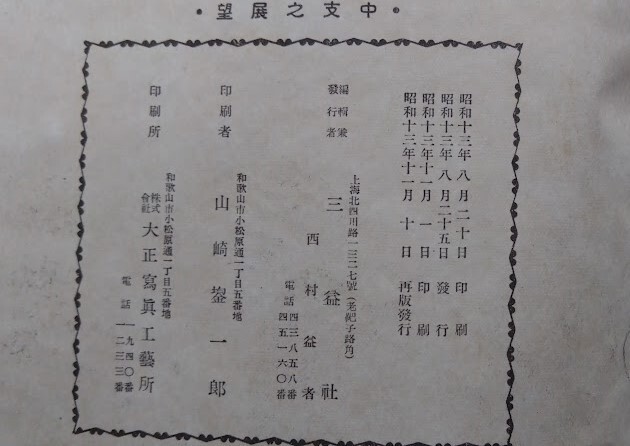 中支之展望
昭和十三年八月二十日 印刷
昭和十三年八月二十五日 發行
昭和十三年十一月一日 印刷
昭和十三年十一月十日 再版發行
上海北四川路一三二七號(老靶子路角)
編輯兼
發行者
三益社
西村益者
電話 四三八五八番
四五一六〇番
和歌山市小松原通一丁目五番地
印刷者 山崎鋆一郎
和歌山市小松原通一丁目五番地
印刷所 株式會社 大正寫眞工藝所
電話 一九四〇番
一二三三番